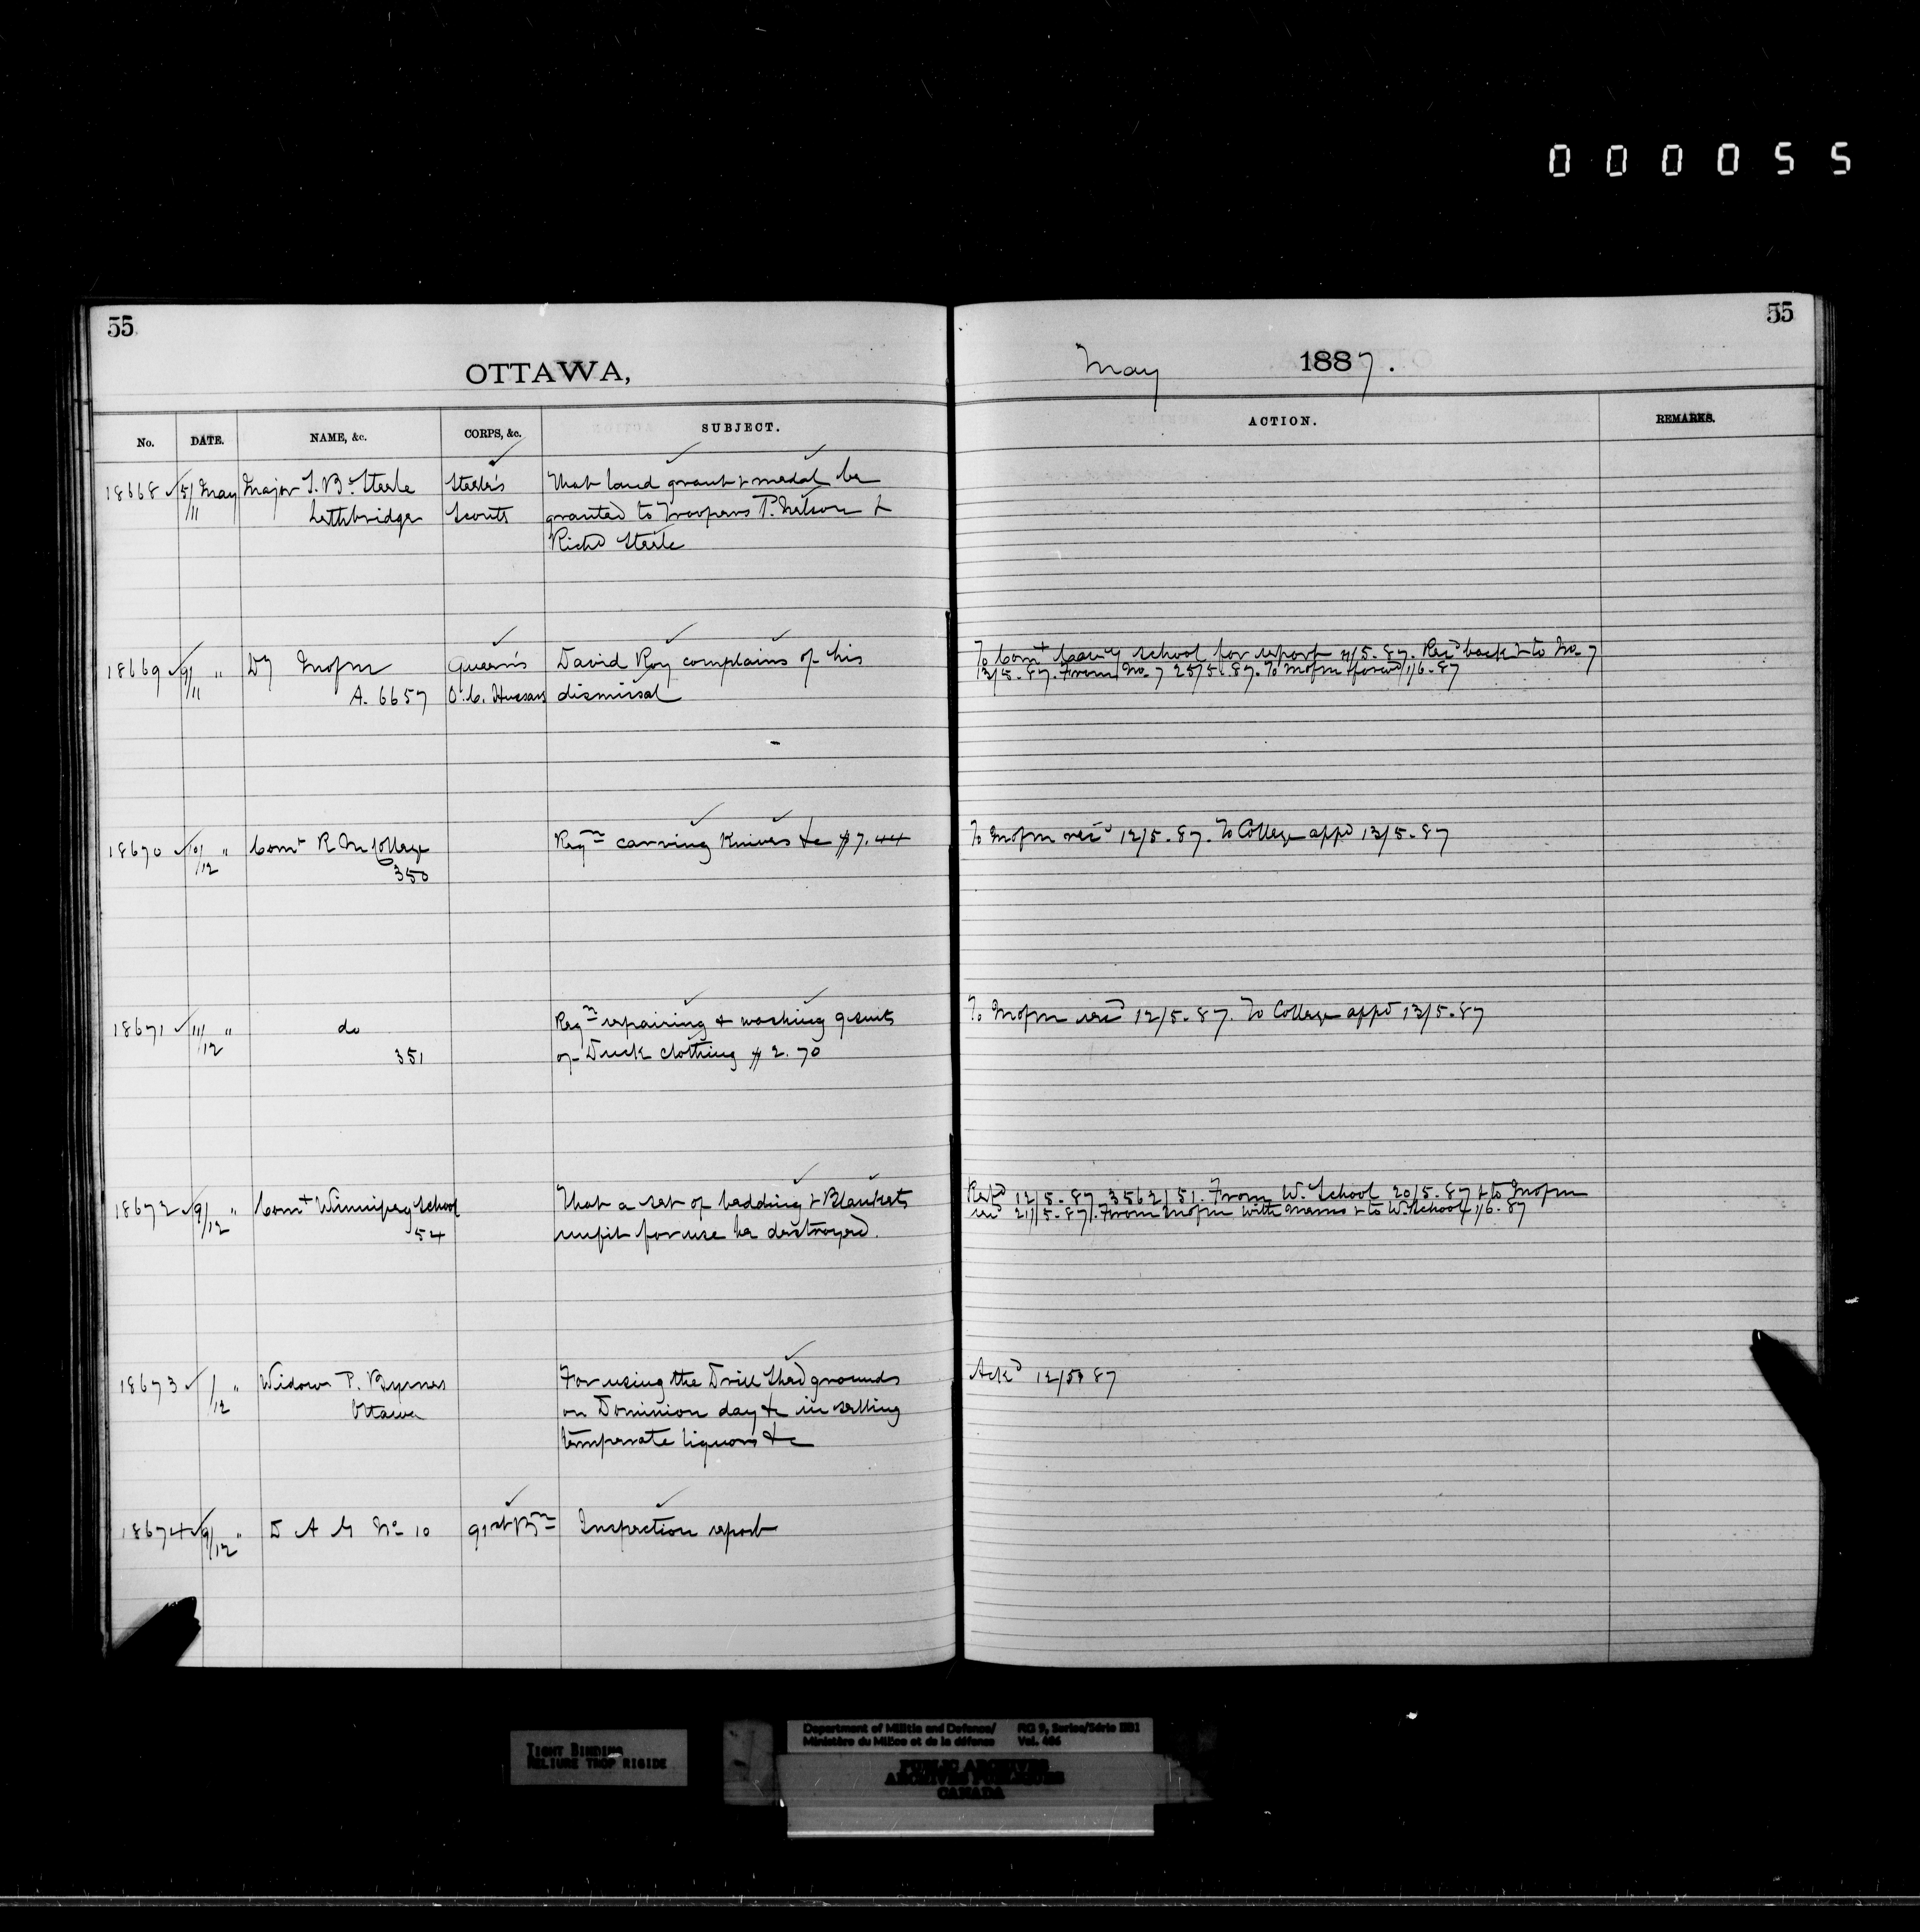 000055
55
55
OTTAWA,
May 1887.
No. DATE. NAME, &c. CORPS, &c. SUBJECT. ACTION. REMARKS.
18668 5/11 May Major S. B. Steele Steele's That land grant & medal be
Lethbridge Scouts granted to Troopers P. Nelson &
Richd Steele
18669 9/11 " Dy Queen's David Roy complains of his To Comt Cavy School for report 11/5-87. Recd back & to No. 7
A. 6657 O. C. Hussars dismissal 13/5-87. From No. 7 25/5-87. To forwd 1/6-87
18670 10/12 " Comt R M College Reqn carving Knives &c $7.44 To 12/5-87. To College appd 13/5-87
350
18671 11/12 " do Reqn repairing & washing 9 suits To 12/5-87. To College appd 13/5-87
351 of Duck clothing $2.70
18672 9/12 " Comt Winnipeg School That a set of bedding & Blankets Repd 12/5-87 3562/51. From W. School 20/5-87 & to
54 unfit for use be destroyed. 21/5-87. From with memo & to W. School 1/6-87
18673 /12 " Widow P. Byrnes For using the Drill Shed grounds Ackd 12/5 87
Ottawa on Dominion day &c in selling
temperate liquors &c
18674 9/12 " D A G No 10 91st Bn Inspection report
TIGHT BINDING
RELIURE TROP RIGIDE
Department of Militia and Defence/ RG 9, Series/Série IIB1
Ministère du Milice et de la défense Vol. 406
PUBLIC ARCHIVES
ARCHIVES PUBLIQUES
CANADA